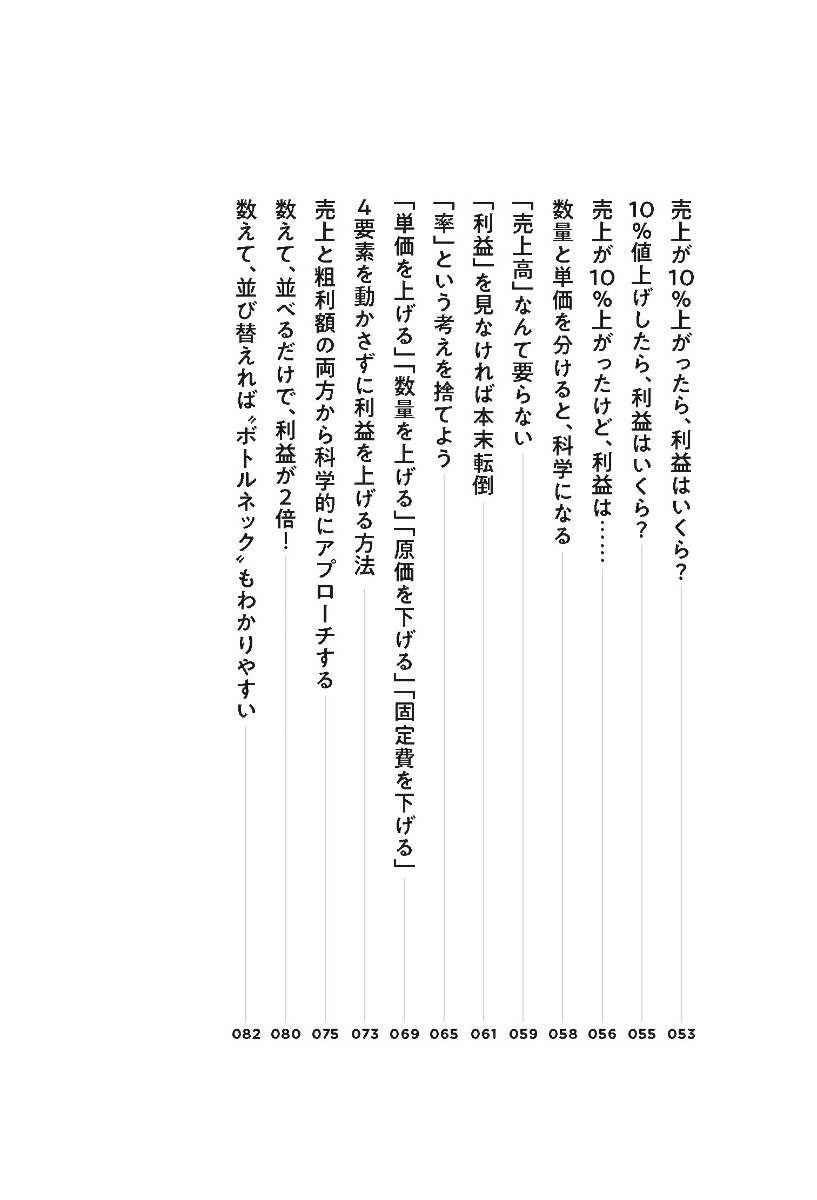 売上が10%上がったら、利益はいくら? 053
10%値上げしたら、利益はいくら? 055
売上が10%上がったけど、利益は…… 056
数量と単価を分けると、科学になる 058
「売上高」なんて要らない 059
「利益」を見なければ本末転倒 061
「率」という考えを捨てよう 065
「単価を上げる」「数量を上げる」「原価を下げる」「固定費を下げる」 069
4要素を動かさずに利益を上げる方法 073
売上と粗利額の両方から科学的にアプローチする 075
数えて、並べるだけで、利益が2倍! 080
数えて、並び替えれば〝ボトルネック〟もわかりやすい 082